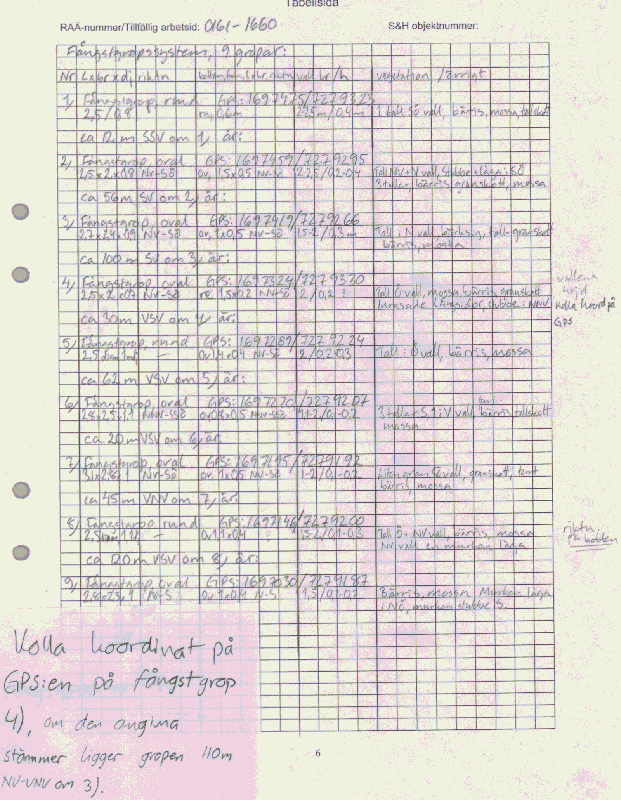 Tabellsida
RAÄ-nummer/Tillfällig arbetsid: 0161-1660
S&H objektnummer:
Fångstgropssystem, 9 gropar:
Nr L x br x dj riktn vall br/h vegetation / övrigt
1) Fångstgrop, rund GPS: 1697425/7279323
2,5/0,8 0,6m 2,25m/0,4m 1 tall SÖ vall, bärris, mossa, tallskott
ca 12 m SSV om 1, är:
2) Fångstgrop, oval GPS: 1697459/7279295
2,5x2x0,9 NV-SÖ 1,5x0,5 NV-SÖ Tall NV+V vall, stubbe + låga i SÖ
3 tallar, bärris granskott, mossa
ca 56m SV om 2, är:
3) Fångstgrop, oval GPS: 1697419/7279266
2,7x2,4x0,9 NV-SÖ ov, 1x0,5 NV-SÖ 1,5-2/0,3m Tall i N vall,
bärris, mossa
ca 100 m SV om 3, är:
4) Fångstgrop, oval GPS: 1697324/7279330
NV-SÖ 2/0,2 Tall Ö vall, mossa bärris granskott
vallena
Kolla koord på
GPS
ca 30m VSV om 4, är:
5) Fångstgrop, rund GPS: 1697289/7279224
ov 1,4x0,4 NV-SÖ 2/0,2-0,3 Tall i Ö vall, bärris, mossa
ca 62 m VSV om 5, är:
6) Fångstgrop, oval GPS: 1697220/7279207
2,8x2,5x1,1 NNV-SSÖ ov 0,8x0,5 NNV-SSÖ 1-2/0,1-0,2 3 tallar S+V vall, bärris tallskott
mossa
ca 20 m VSV om 6, är
7) Fångstgrop, oval GPS: 1697195/7279192
NV-SÖ ov 1x0,5 NV-SÖ 1-2/0,1-0,2 Liten gran SÖ vall, granskott,
bärris, mossa
ca 45m VNV om 7, är:
8) Fångstgrop, rund GPS: 1697146/7279200
1,5-2/0,1-0,3 Tall Ö+ NV vall, bärris, mossa
NV vall en murken låga
riktn.
på botten
ca 120m VSV om 8, är:
9) Fångstgrop, oval GPS: 1697030/7279187
2,8x2,3x1 N-S ov 1x0,4 N-S 1,5/0,1-0,2 Bärris, mossa, Murken låga
i NÖ, murken stubbe S.
Kolla koordinat på
GPS:en på fångstgrop
4), om den angivna
stämmer ligger gropen 110m
NV-VNV om 3).
6